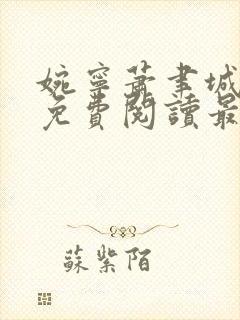 婉寧蕭聿城
免費閱讀最
蘇紫陌